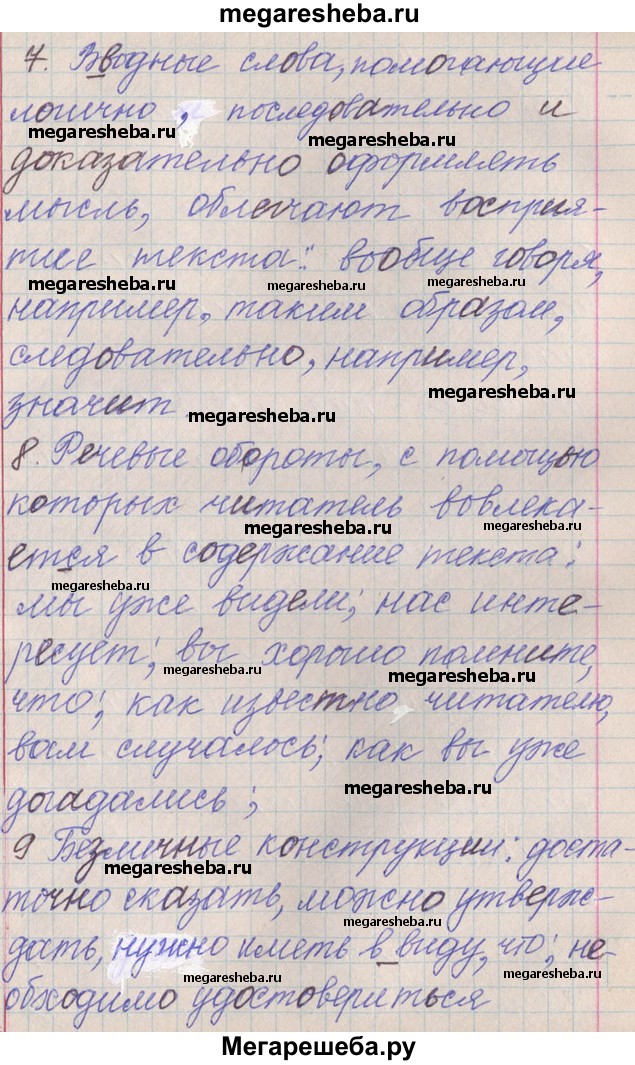 megaresheba.ru
7. Вводные слова, помогающие
логично, последовательно и
megaresheba.ru
megaresheba.ru
доказательно оформлять
мысль, облегчают восприя-
тие текста: вообще говоря,
megaresheba.ru
megaresheba.ru
например, таким образом,
следовательно, например,
megaresheba.ru
значит
megaresheba.ru
8. Речевые обороты, с помощью
которых читатель вовлека-
megaresheba.ru
megaresheba.ru
ется в содержание текста:
megaresheba.ru
мы уже видели; нас инте-
ресует; вы хорошо помните,
megaresheba.ru
megaresheba.ru
что; как известно читателю,
вам случалось; как вы уже
megaresheba.ru
догадались;
9 Безличные конструкции: доста-
megaresheba.ru
точно сказать, можно утверж-
megaresheba.ru
дать, нужно иметь в виду, что; не-
megaresheba.ru
megaresheba.ru
обходимо удостовериться
Мегарешеба.ру